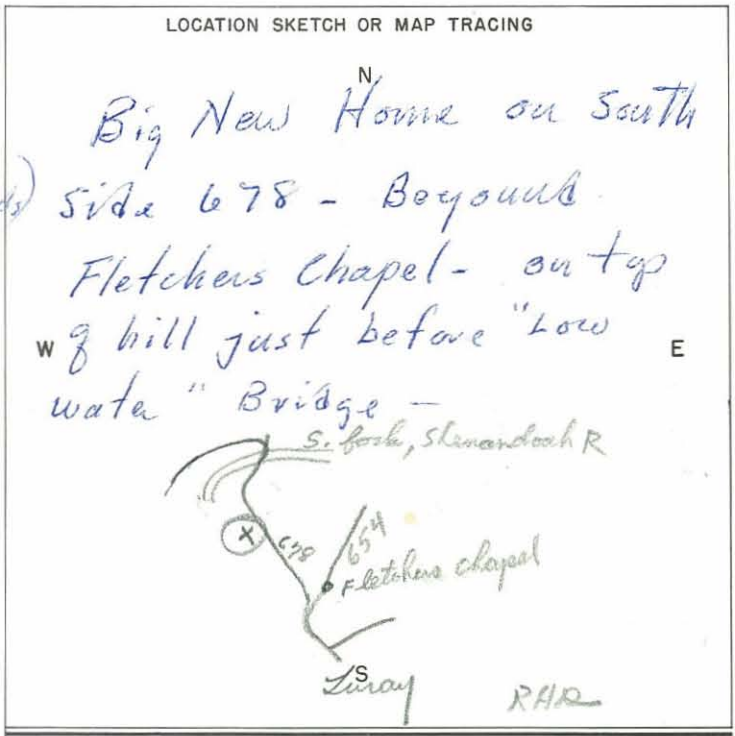 LOCATION SKETCH OR MAP TRACING
N
Big New Home on South
side 678 - Beyound
Fletchers Chapel - on top
W
of hill just before "Low
E
water" Bridge -
S. fork, Shenandoah R
X
678
654
Fletchers chapel
S
Luray
RHR